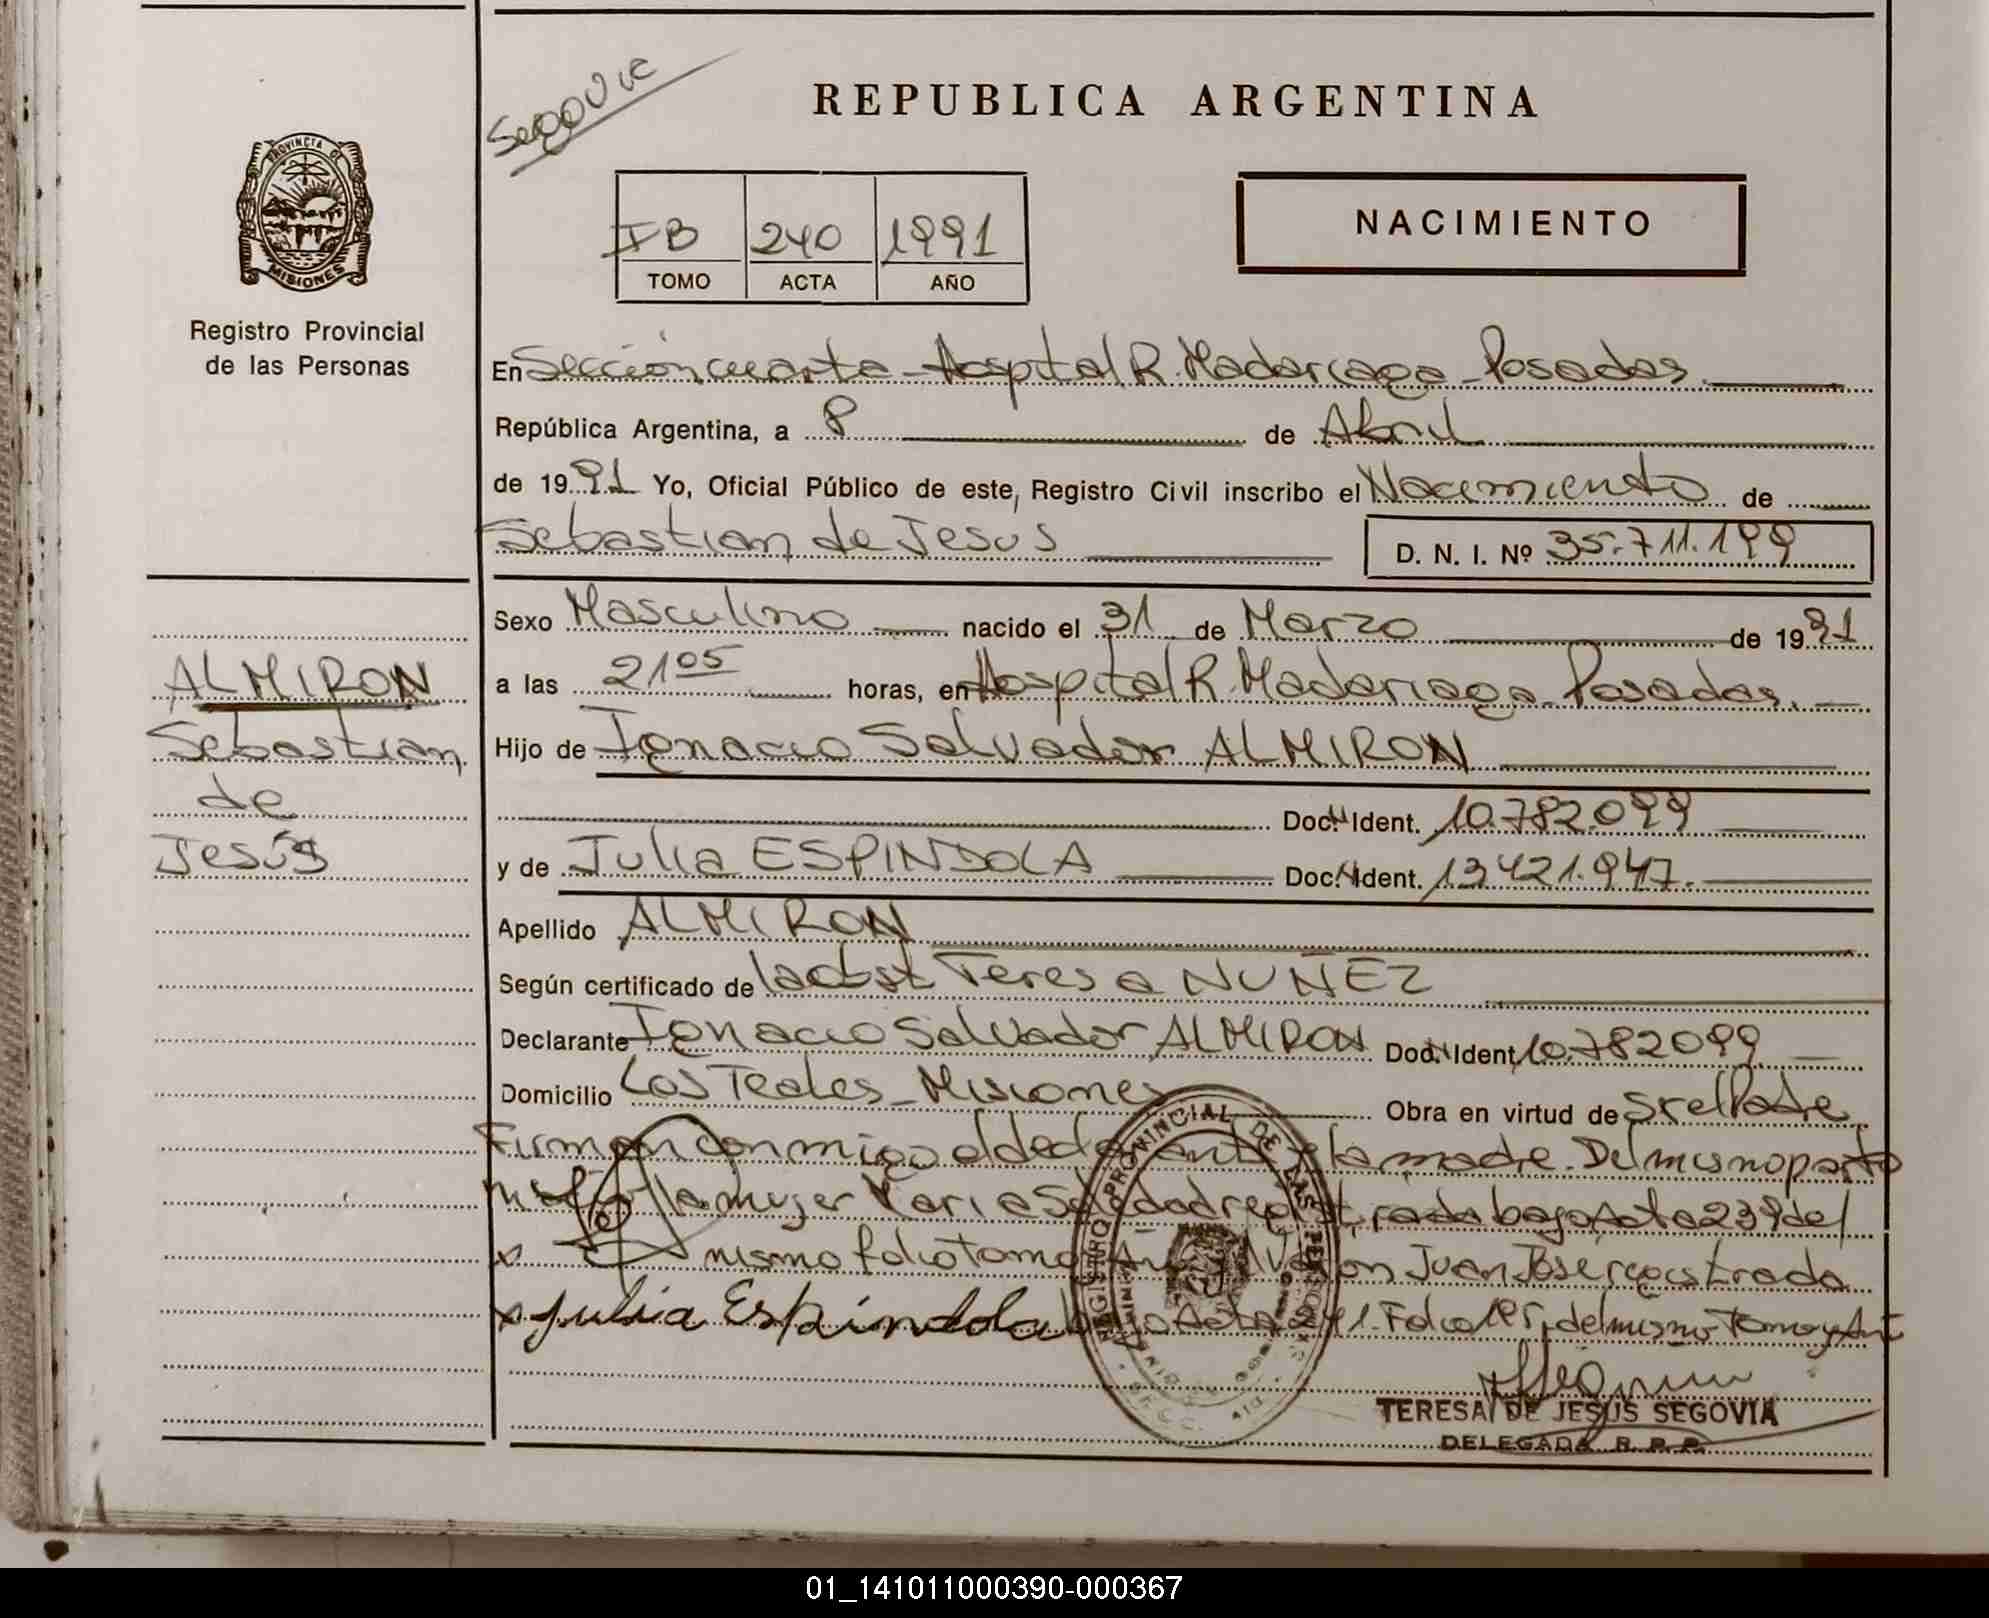 Segovia
REPUBLICA ARGENTINA
PROVINCIA DE
MISIONES
Registro Provincial
de las Personas
IB 240 1991
TOMO ACTA AÑO
NACIMIENTO
En Sección cuarta - Hospital R. Madariaga - Posadas
República Argentina, a 8 de Abril
de 1991 Yo, Oficial Público de este, Registro Civil inscribo el Nacimiento de
Sebastian de Jesus D. N. I. Nº 35.711.199
Sexo Masculino nacido el 31 de Marzo de 1991
a las 21 05 horas, en Hospital R. Madariaga - Posadas.
Hijo de Ignacio Salvador ALMIRON
Doc. Ident. 10.782.099
y de Julia ESPINDOLA Doc. Ident. 13421.947.
Apellido ALMIRON
Según certificado de la Obst Teresa NUÑEZ
Declarante Ignacio Salvador ALMIRON Doc. Ident. 10.782099
Domicilio Los Teales - Misiones Obra en virtud de ser el Padre
ALMIRON
Sebastian
de
Jesús
Firman conmigo el declarante y la madre. Del mismo parto
la mujer Maria Soledad registrada bajo Acta 239 del
x mismo folio tomo Juan José registrada
x Julia Espindola bajo Acta 241. Folio del mismo Tomo y Año
REGISTRO PROVINCIAL DE LAS PERSONAS
TERESA DE JESUS SEGOVIA
DELEGADA R. P. P.
01_141011000390-000367